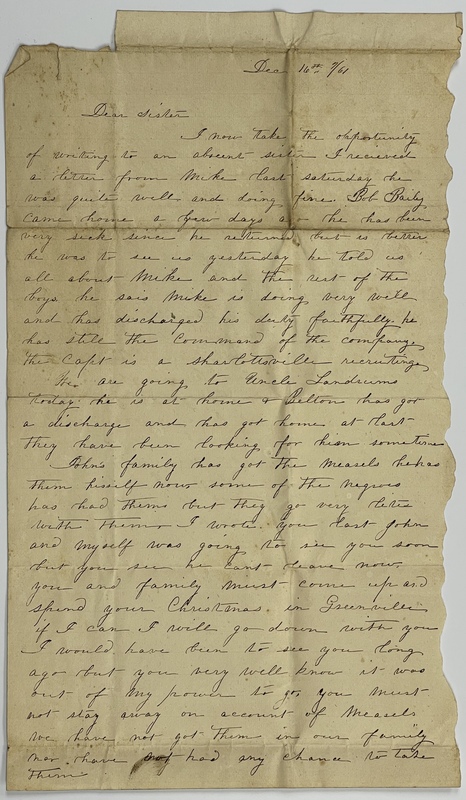 Dec 16th /61
Dear Sister
I now take the opportunity
of writting to an abscent sister I recieved
a letter from Mike last saturday he
was quite well and doing fine. Bob Baily
came home a few days ago he has been
very sick since he returned but is better
he was to see us yesterday he told us
all about Mike and the rest of the
boys he sais Mike is doing very well
and has discharged his duty faithfully. he
has still the command of the company.
the Capt is a sharlottsville recruiting
We are going to Uncle Landrums
today. he is at home & Belton has got
a discharge and has got home at last
they have been looking for him sometime
John's family has got the Measels he has
them hisself now some of the negroes
has had them but they go very lite
with them I wrote you last John
and myself was going to see you soon
but you see he cant leave now.
you and family must come up and
spend your Christmas in Greenville
if I can I will go down with you
I would have been to see you long
ago but you very well know it was
out of my power to go, you must
not stay away on account of Measels
we have not got them in our family
nor have not had any chance to take
them